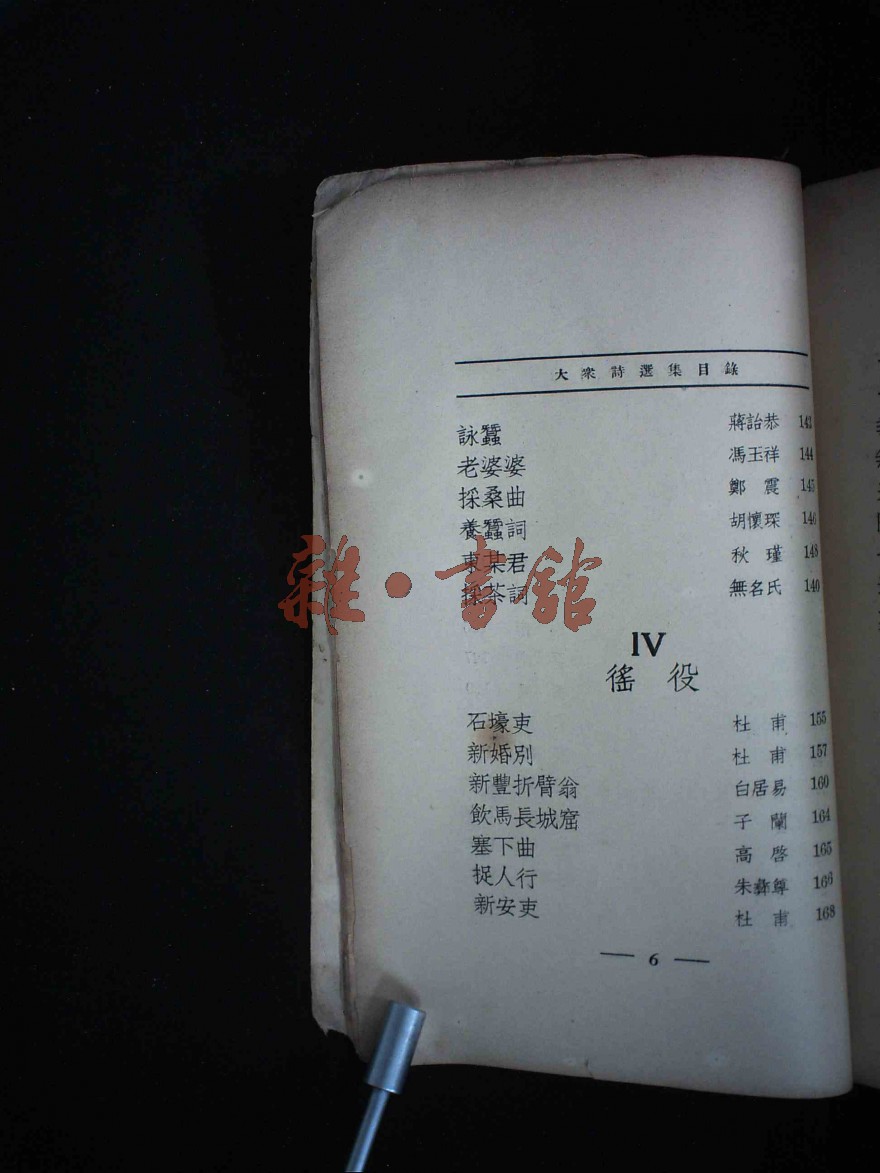 大衆詩選集目錄
詠蠶 蔣詒恭 143
老婆婆 馮玉祥 144
採桑曲 鄭震 145
養蠶詞 胡懷琛 146
柬某君 秋瑾 148
採茶詞 無名氏 140
IV
徭役
石壕吏 杜甫 155
新婚別 杜甫 157
新豐折臂翁 白居易 160
飲馬長城窟 子蘭 164
塞下曲 高啓 165
捉人行 朱彝尊 166
新安吏 杜甫 168
— 6 —
雜·書館